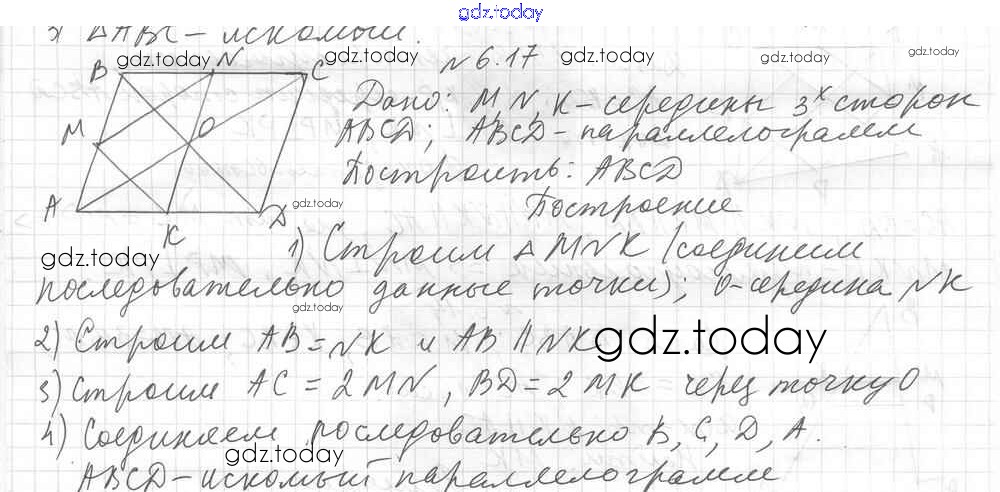 gdz.today
3) △ABC - искомый.
gdz.today gdz.today gdz.today gdz.today gdz.today
B N C
№ 6.17
Дано: M, N, K - середины 3х сторон
M O
ABCD; ABCD - параллелограмм
Построить: ABCD
A K D gdz.today
Построение
gdz.today
1) Строим △ MNK (соединим
последовательно данные точки); O - середина NK
gdz.today gdz.today
2) Строим AB = NK и AB || NK
gdz.today
3) Строим AC = 2 MN, BD = 2 MK через точку O
gdz.today gdz.today
4) Соединяем последовательно B, C, D, A.
gdz.today
ABCD - искомый параллелограмм